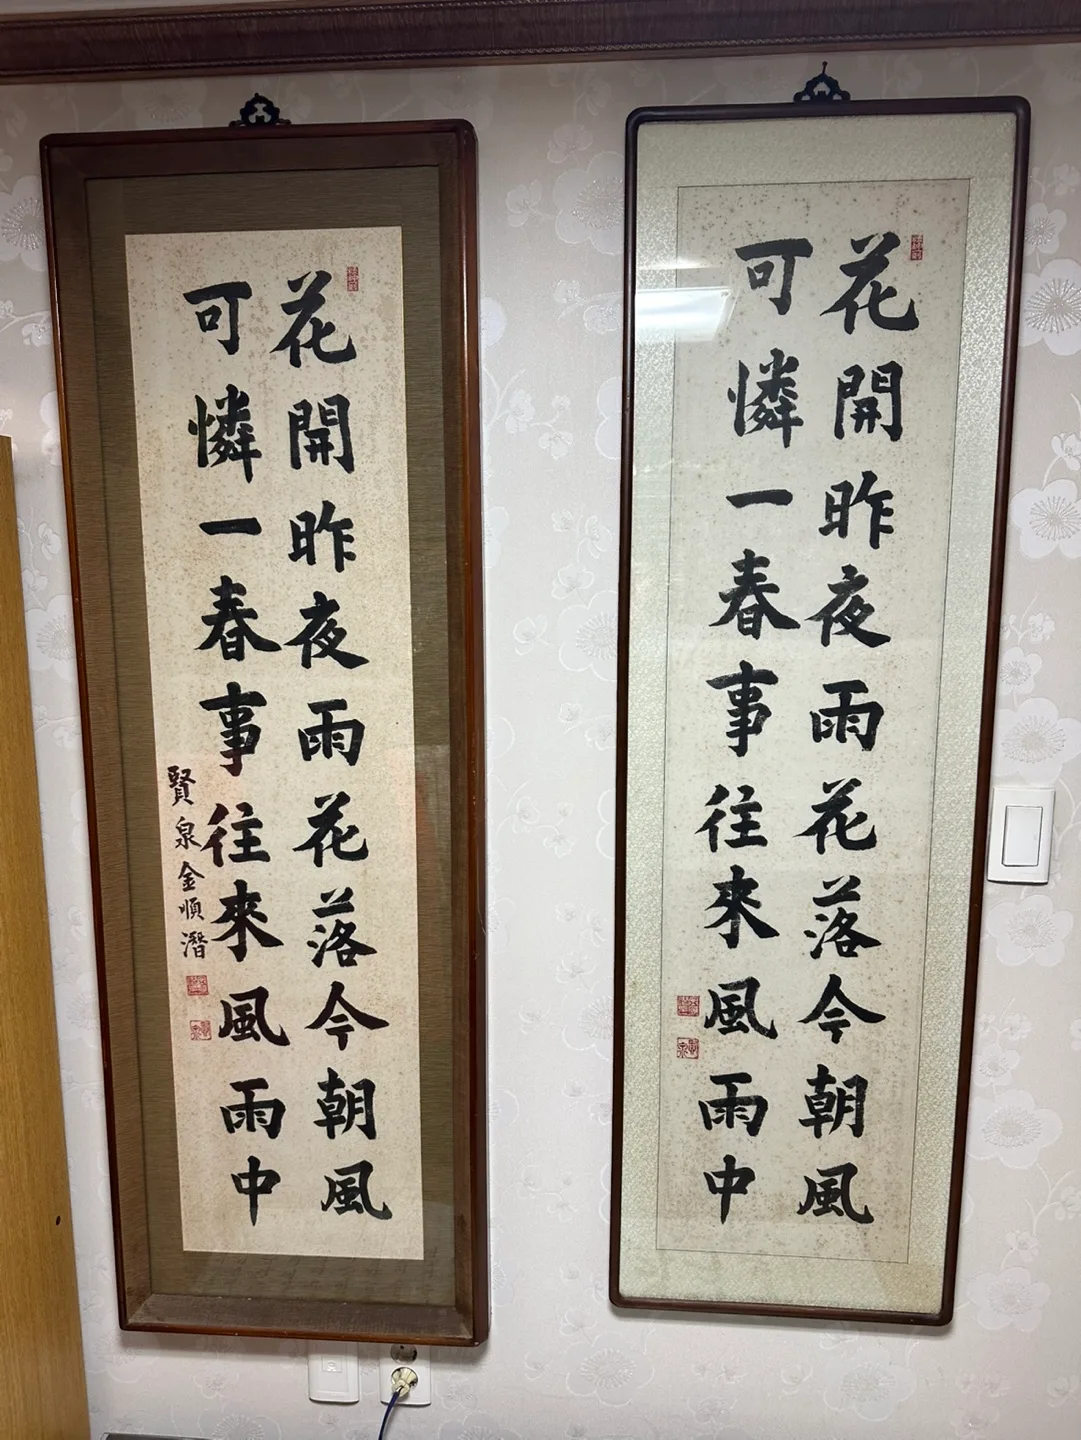 花開昨夜雨花落今朝風
可憐一春事往來風雨中
賢泉金順潛
花開昨夜雨花落今朝風
可憐一春事往來風雨中